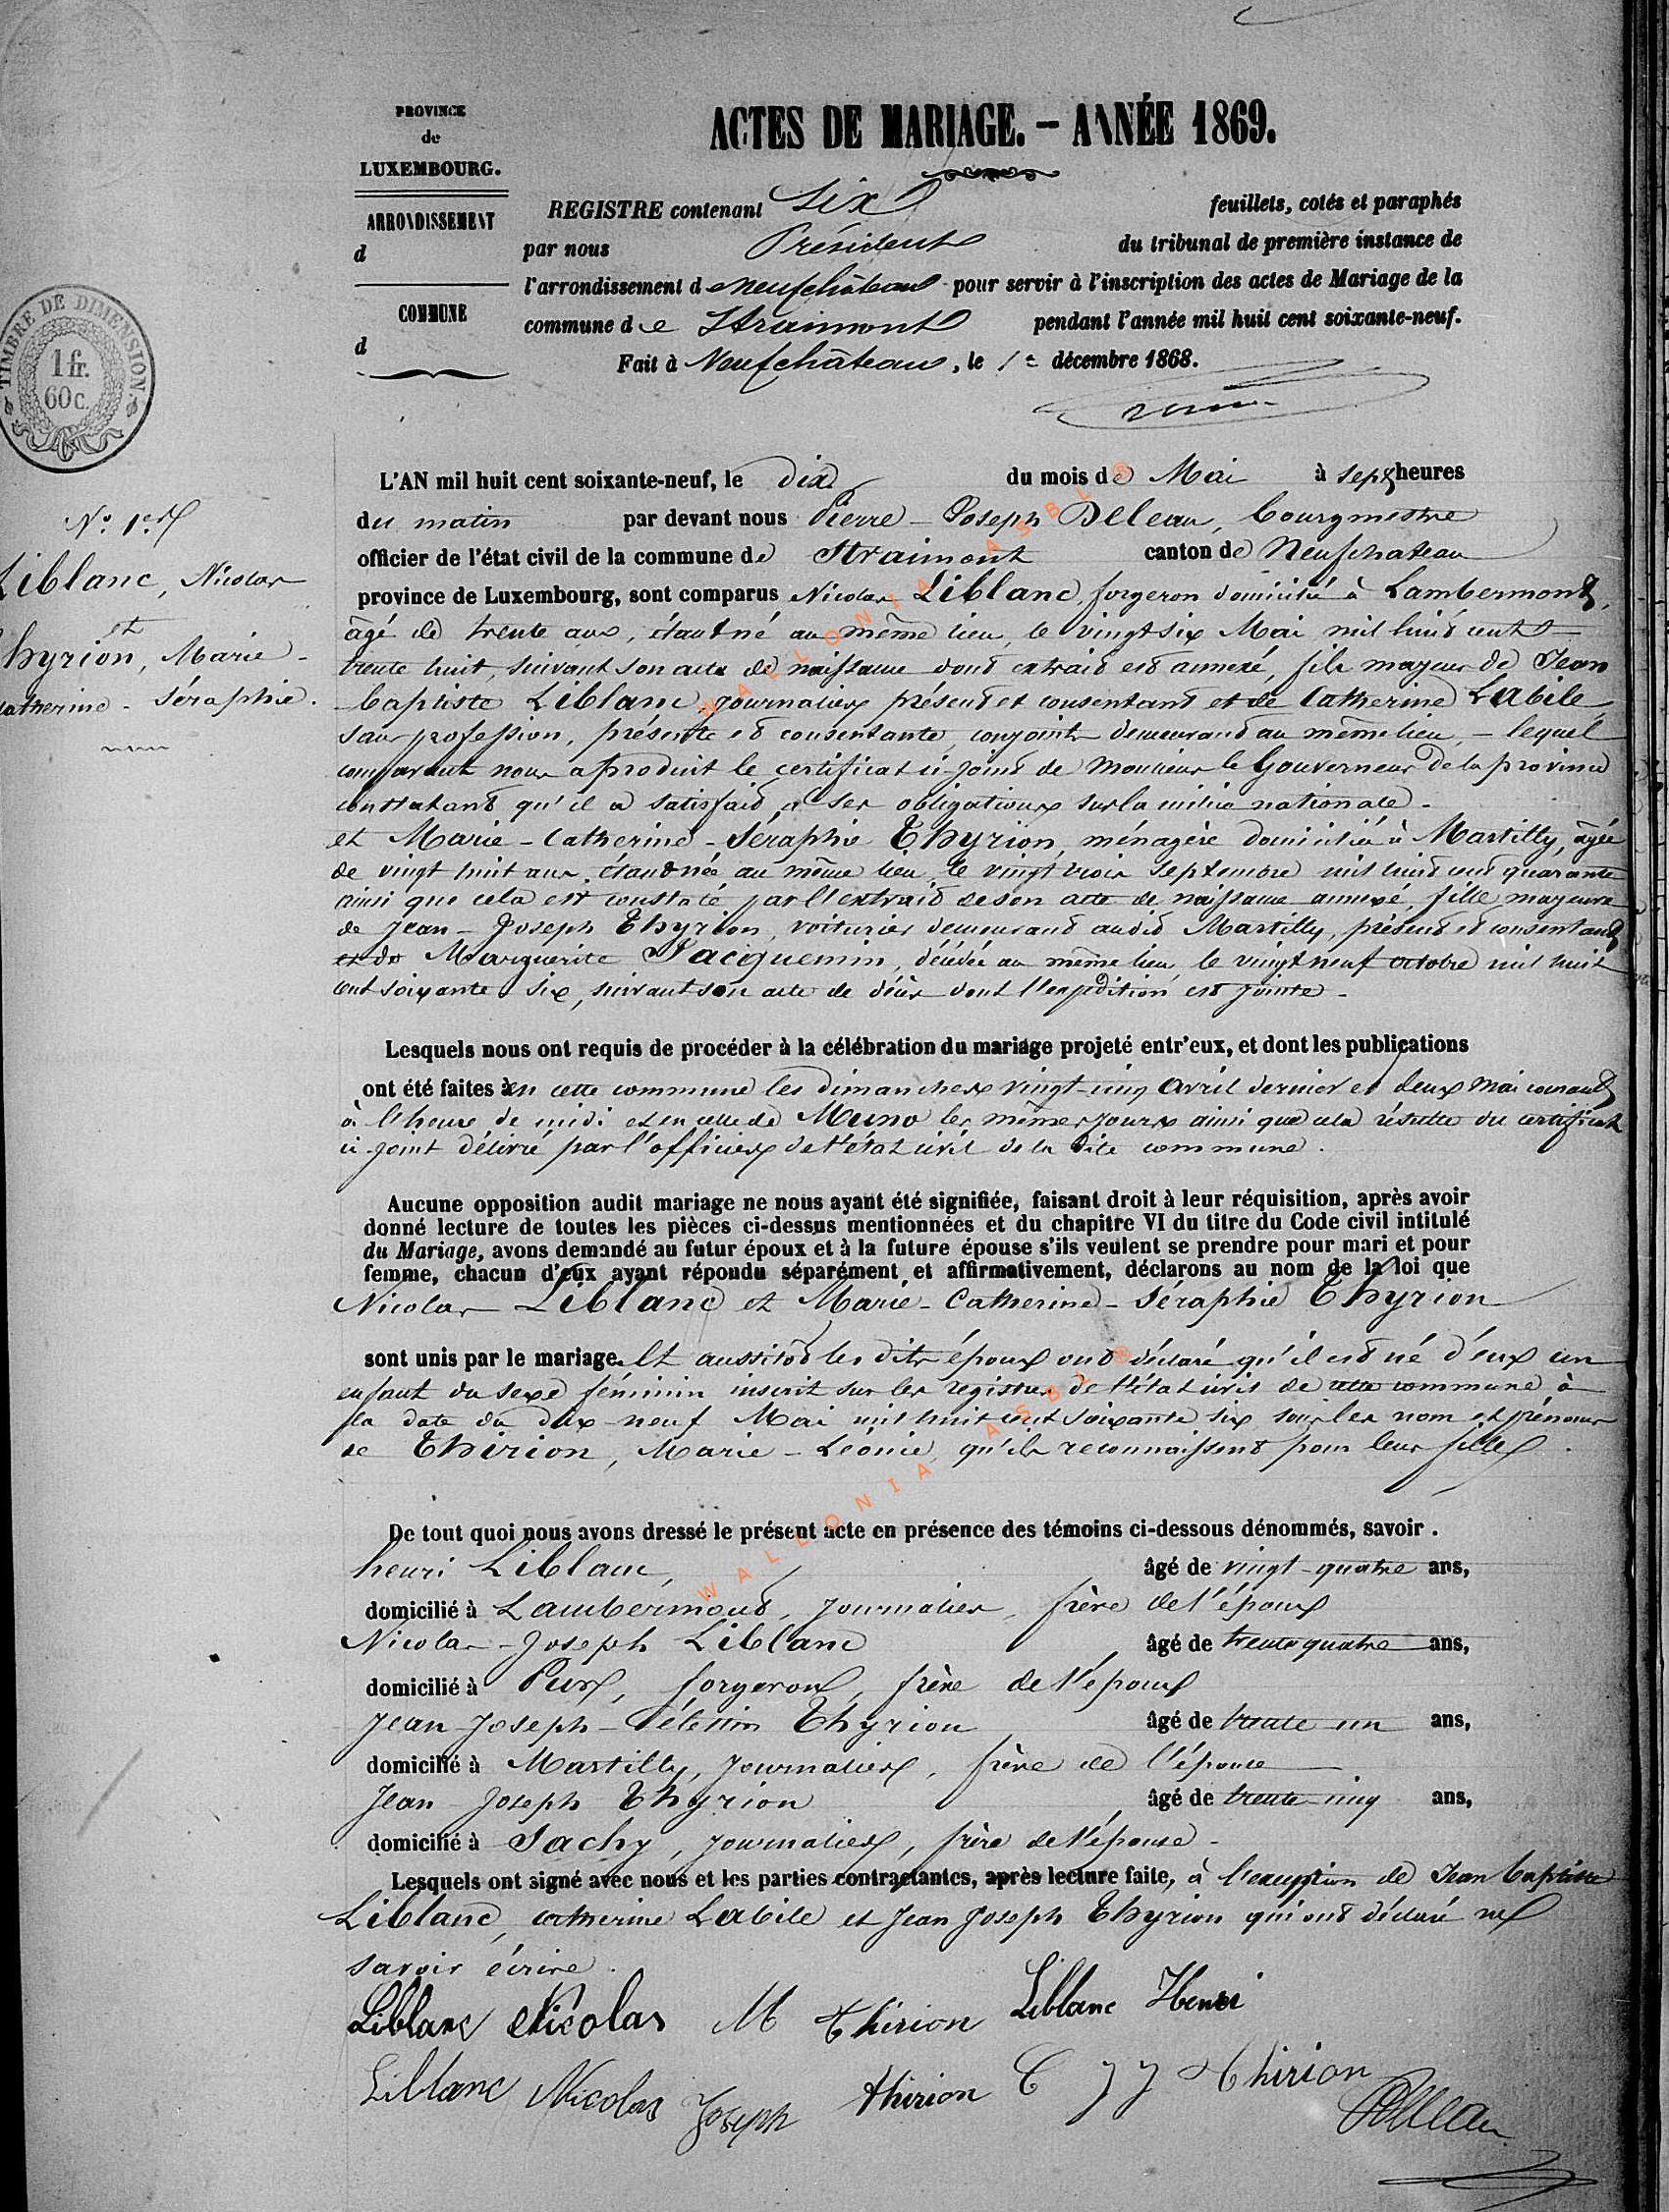 PROVINCE
de
LUXEMBOURG.
ARRONDISSEMENT
d
COMMUNE
d
TIMBRE DE DIMENSION
1 fr.
60 c.
ACTES DE MARIAGE. - ANNÉE 1869.
REGISTRE contenant Six feuillets, cotés et paraphés
par nous Président du tribunal de première instance de
l'arrondissement de Neufchâteau pour servir à l'inscription des actes de Mariage de la
commune de Straimont pendant l'année mil huit cent soixante-neuf.
Fait à Neufchâteau, le 1er décembre 1868.
N° 1er
Liblanc, Nicolas
et
Thyrion, Marie-
Catherine-Séraphie.
L'AN mil huit cent soixante-neuf, le dix du mois de Mai à sept heures
du matin par devant nous Pierre-Joseph Deleau, bourgmestre
officier de l'état civil de la commune de Straimont canton de Neufchateau
province de Luxembourg, sont comparus Nicolas Liblanc, forgeron domicilié à Lambermont,
âgé de trente ans, étant né au même lieu, le vingt six Mai mil huit cent
trente huit, suivant son acte de naissance dont extrait est annexé, fils majeur de Jean
baptiste Liblanc, journalier présent et consentant et de Catherine Labile,
sans profession, présente et consentante, conjoints demeurant au même lieu, - lequel
comparant nous a produit le certificat ci-joint de Monsieur le Gouverneur de la province
constatant qu'il a satisfait à ses obligations sur la milice nationale -
et Marie-Catherine-Séraphie Thyrion, ménagère domiciliée à Martilly, âgée
de vingt huit ans, étant née au même lieu, le vingt trois septembre mil huit cent quarante
ainsi que cela est constaté par l'extrait de son acte de naissance annexé, fille majeure
de Jean-Joseph Thyrion, voiturier demeurant audit Martilly, présent et consentant
et de Marguerite Jacquemin, décédée au même lieu, le vingt neuf octobre mil huit
cent soixante six, suivant son acte de décès dont l'expédition est jointe -
Lesquels nous ont requis de procéder à la célébration du mariage projeté entr'eux, et dont les publications
ont été faites à en cette commune les dimanches vingt-cinq avril dernier et deux Mai courant
à l'heure de midi et en celle de Muno les mêmes jours ainsi que cela résulte du certificat
ci-joint délivré par l'officier de l'état civil de la dite commune.
Aucune opposition audit mariage ne nous ayant été signifiée, faisant droit à leur réquisition, après avoir
donné lecture de toutes les pièces ci-dessus mentionnées et du chapitre VI du titre du Code civil intitulé
du Mariage, avons demandé au futur époux et à la future épouse s'ils veulent se prendre pour mari et pour
femme, chacun d'eux ayant répondu séparément et affirmativement, déclarons au nom de la loi que
Nicolas Liblanc et Marie-Catherine-Séraphie Thyrion
sont unis par le mariage. Et aussitôt les dits époux ont déclaré qu'il est né d'eux un
enfant du sexe féminin inscrit sur les registres de l'état civil de cette commune, à
la date du dix-neuf Mai mil huit cent soixante six sous les nom et prénoms
de Thirion, Marie-Léonie, qu'ils reconnaissent pour leur fille.
De tout quoi nous avons dressé le présent acte en présence des témoins ci-dessous dénommés, savoir.
henri Liblanc, âgé de vingt-quatre ans,
domicilié à Lambermont, journalier, frère de l'époux
Nicolas-Joseph Liblanc âgé de trente quatre ans,
domicilié à Pure, forgeron, frère de l'époux
Jean-Joseph-Célestin Thyrion âgé de trente un ans,
domicilié à Martilly, journalier, frère de l'épouse
Jean Joseph Thyrion âgé de trente cinq ans,
domicilié à Sachy, journalier, frère de l'épouse -
Lesquels ont signé avec nous et les parties contractantes, après lecture faite, à l'exception de Jean baptiste
Liblanc, catherine Labile et Jean Joseph Thyrion qui ont déclaré ne
savoir écrire.
Liblanc Nicolas M thirion Liblanc Henri
Liblanc Nicolas Joseph thirion C J J thirion
PJDeleau
WALLONIA ASBL ®
WALLONIA ASBL ®